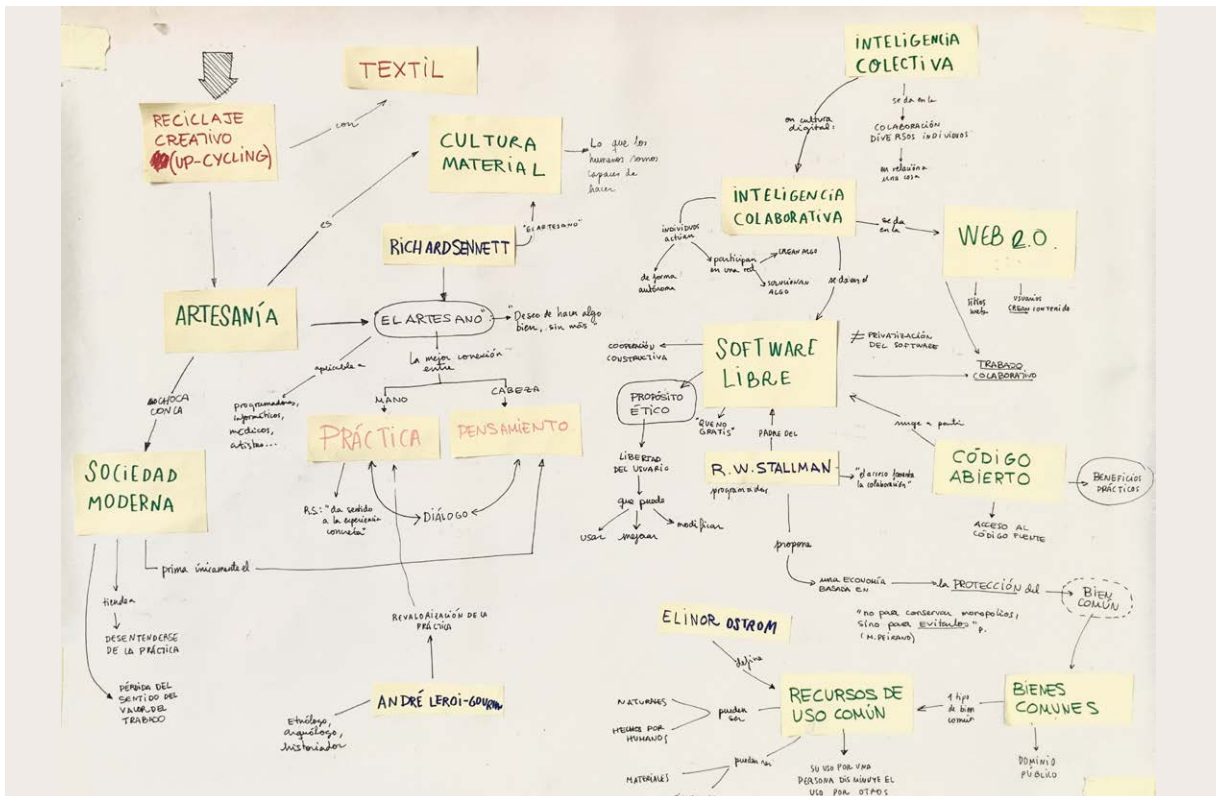 RECICLAJE
CREATIVO
(UP-CYCLING)
con
TEXTIL
es
CULTURA
MATERIAL
Lo que los
humanos somos
capaces de
hacer
RICHARD SENNETT
"EL ARTESANO"
ARTESANÍA
"EL ARTESANO"
"Deseo de hacer algo
bien, sin más"
aplicable a
programadores,
informáticos,
médicos,
artistas...
La mejor conexión
entre
MANO
CABEZA
PRÁCTICA
PENSAMIENTO
R.S: "da sentido
a la experiencia
concreta"
DIÁLOGO
CHOCA
CON LA
SOCIEDAD
MODERNA
prima únicamente el
tiende a
DESENTENDERSE
DE LA PRÁCTICA
PÉRDIDA DEL
SENTIDO DEL
VALOR DEL
TRABAJO
REVALORIZACIÓN DE LA
PRÁCTICA
ANDRÉ LEROI-GOURHAN
Etnólogo,
arquólogo,
historiador
INTELIGENCIA
COLECTIVA
se da en la
COLABORACIÓN
DIVERSOS INDIVIDUOS
en relación a
una cosa
en cultura
digital:
INTELIGENCIA
COLABORATIVA
individuos
actúan
de forma
autónoma
participan
en una red
CREAN ALGO
SOLUCIONAN
ALGO
se da en la
WEB 2.0.
sitios
web
usuarios
CREAN contenido
TRABAJO
COLABORATIVO
se da en el
SOFTWARE
LIBRE
≠ PRIVATIZACIÓN
DEL SOFTWARE
COOPERACIÓN
CONSTRUCTIVA
PROPÓSITO
ÉTICO
"QUE NO
GRATIS"
PADRE DEL
LIBERTAD
DEL USUARIO
que puede
usar
mejorar
modificar
R.W. STALLMAN
programador
"el acceso fomenta
la colaboración"
surge a partir
CÓDIGO
ABIERTO
BENEFICIOS
PRÁCTICOS
ACCESO AL
CÓDIGO FUENTE
propone
una ECONOMÍA
BASADA EN
la PROTECCIÓN del
BIEN
COMÚN
"no para conservar monopolios,
sino para evitarlos" p.
(M. PEIRANO)
ELINOR OSTROM
define
RECURSOS DE
USO COMÚN
1 tipo
de bien
común
BIENES
COMUNES
DOMINIO
PÚBLICO
pueden
ser
NATURALES
HECHOS POR
HUMANOS
pueden ser
MATERIALES
SU USO POR UNA
PERSONA DISMINUYE EL
USO POR OTROS